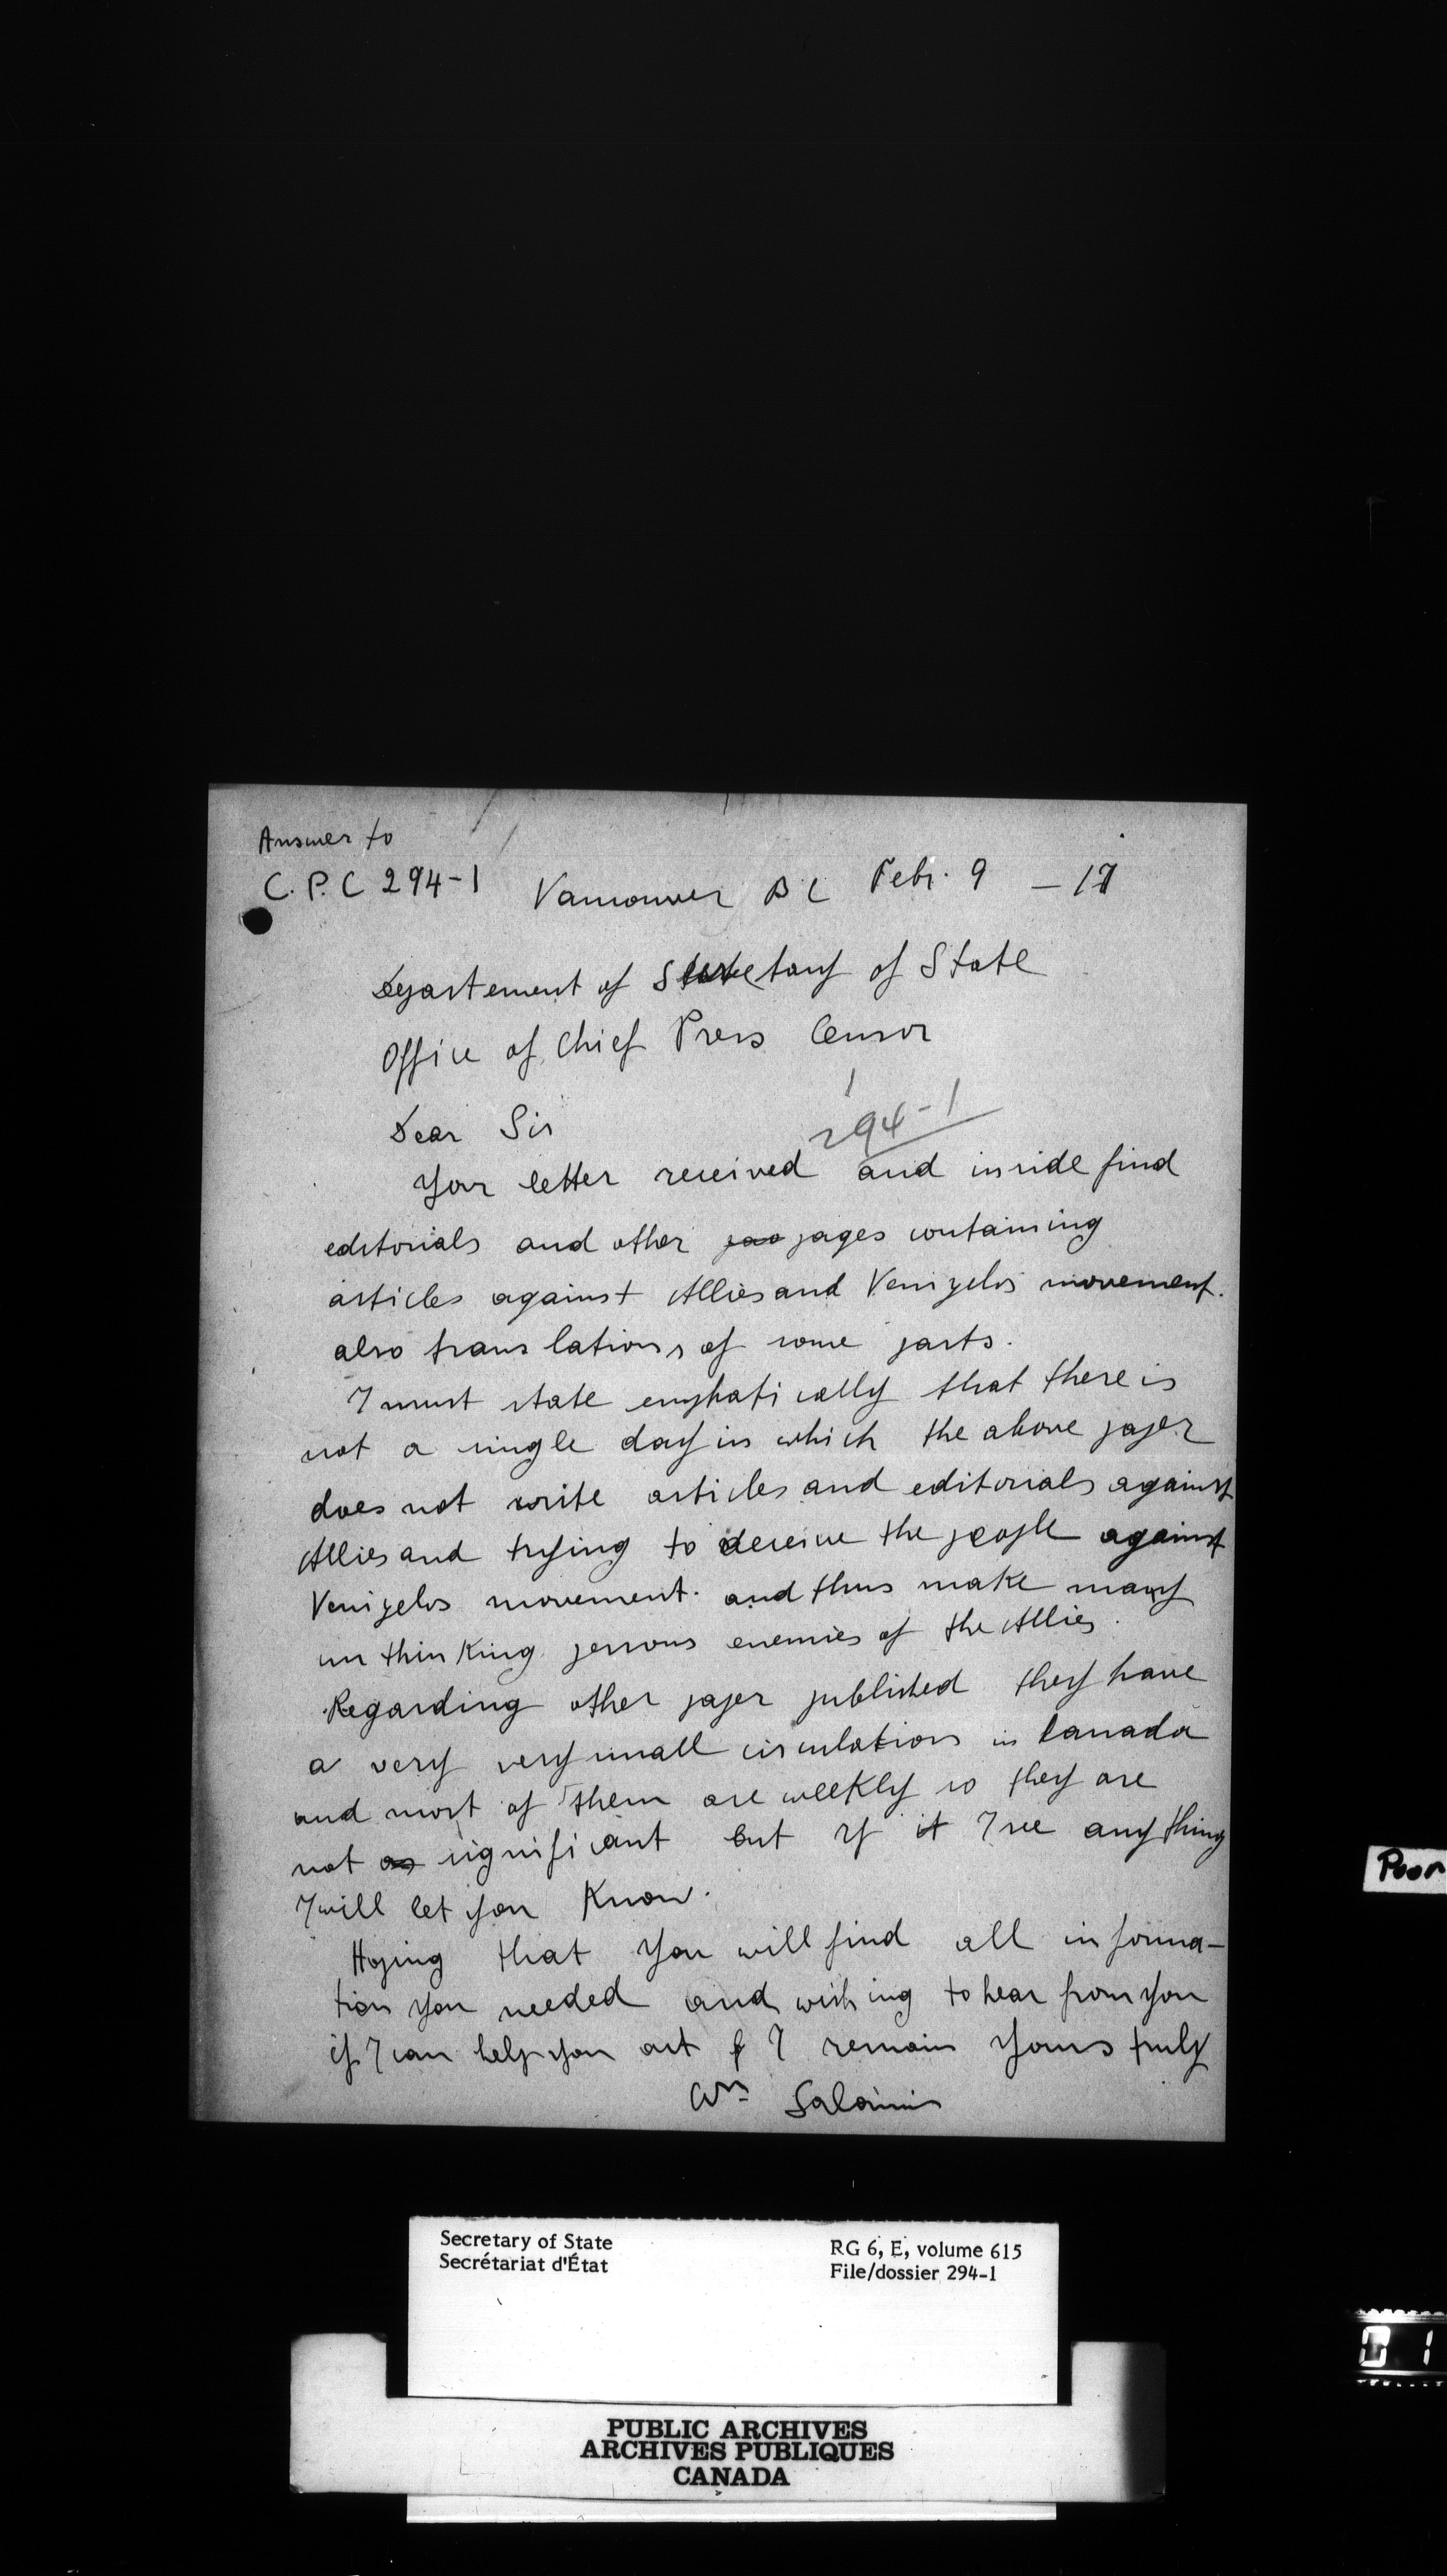 Answer to
C.P.C 294-1 Vancouver B C Febr. 9 - 17
Departement of Secretary of State
Office of Chief Press Censor
Dear Sir
294-1
Your letter received and inside find
editorials and other pages containing
articles against Allies and Venizelos movement.
also translations of some parts.
I must state emphatically that there is
not a single day in which the above paper
does not write articles and editorials against
Allies and trying to deceive the people against
Venizelos movement. and thus make many
unthinking persons enemies of the Allies.
Regarding other paper published they have
a very very small circulation in Canada
and most of them are weekly so they are
not as significant but if it I see anything
I will let you know.
Hoping that you will find all informa-
tion you needed and wishing to hear from you
if I can help you I remain Yours truly
Wm Salamis
Poor
Secretary of State
Secrétariat d'État
RG 6, E, volume 615
File/dossier 294-1
PUBLIC ARCHIVES
ARCHIVES PUBLIQUES
CANADA